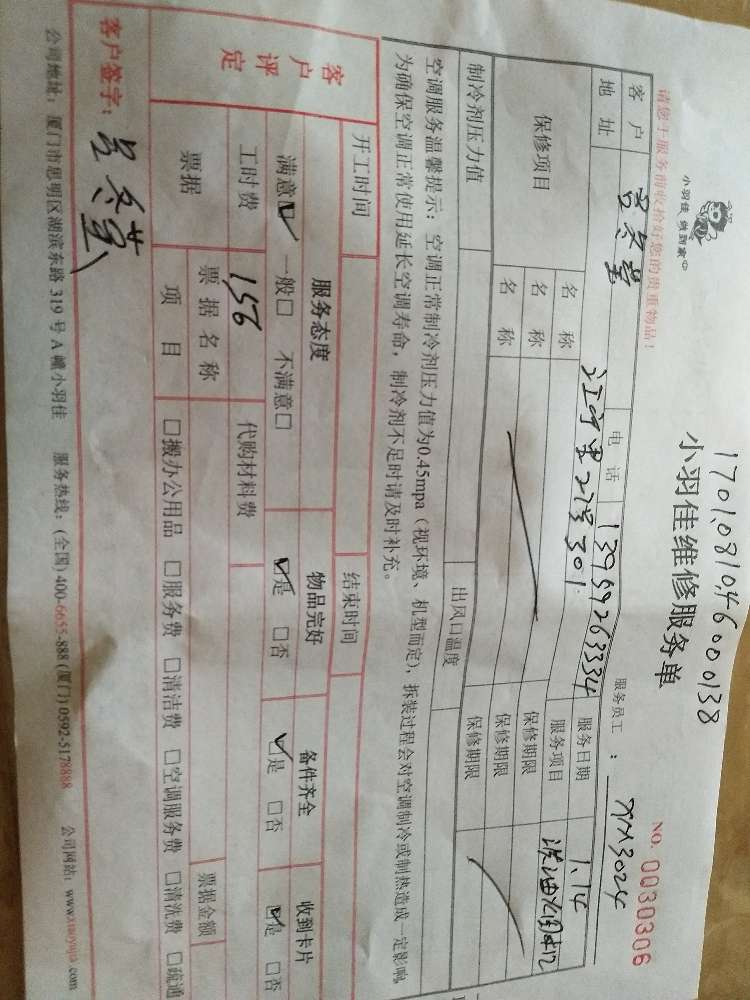 17010810460000138
小羽佳 做到家
小羽佳维修服务单
NO. 0030306
请您于服务前收拾好您的贵重物品！
服务员工： XM3024
客户 电话 13959263334 服务日期 1.14
地址 江宁里27号301 服务项目
保修项目 名称 保修期限
名称 保修期限
名称 保修期限
制冷剂压力值 出风口温度
空调服务温馨提示：空调正常制冷剂压力值为0.45mpa（视环境、机型而定），拆装过程会对空调制冷或制热造成一定影响，
为确保空调正常使用延长空调寿命，制冷剂不足时请及时补充。
开工时间 结束时间
客户评定 服务态度 物品完好 备件齐全 收到卡片
满意☑ 一般□ 不满意□ ☑是 □否 ☑是 □否 ☑是 □否
工时费 156 代购材料费
票据 票据名称 票据金额
项目 □搬办公用品 □服务费 □清洁费 □空调服务费 □清洗费 □疏通
客户签字：
公司地址：厦门市思明区湖滨东路319号A幢小羽佳 服务热线：(全国) 400-6655-888 (厦门) 0592-5178888 公司网站：www.xiaoyujia.com